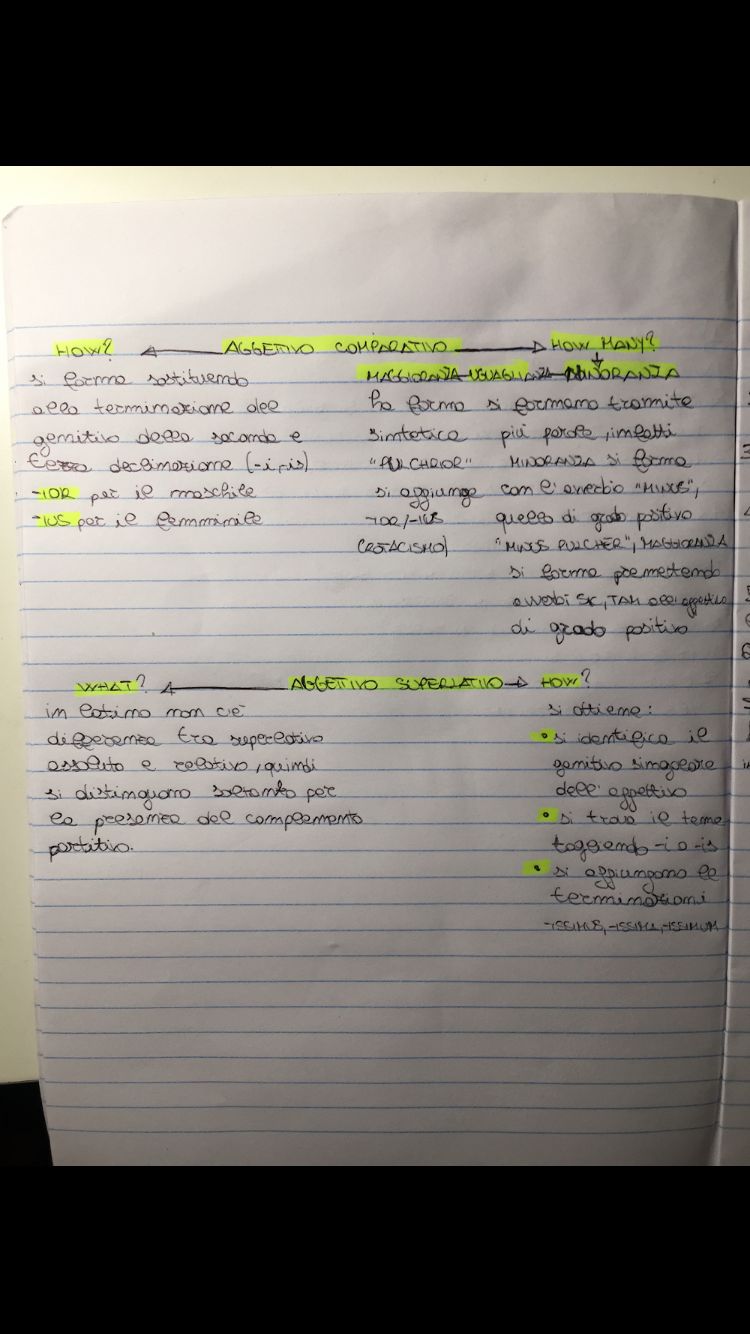 HOW? AGGETTIVO COMPARATIVO HOW MANY?
si forma sostituendo
alla terminazione del
genitivo della seconda e
terza declinazione (-i,-is)
-IOR per il maschile
-IUS per il femminile
MAGGIORANZA-UGUAGLIANZA-MINORANZA
ha forma si formano tramite
sintetica più parole, infatti
"PULCHRIOR" MINORANZA si forma
si aggiunge con l'avverbio "MINUS",
-IOR/-IUS quello di grado psitivo
(ROTACISMO) "MINUS PULCHER", MAGGIORANZA
si forma premettendo
avverbi SIC, TAM all'aggettivo
di grado positivo
WHAT? AGGETTIVO SUPERLATIVO HOW?
in latino non c'è
differenza tra superlativo
assoluto e relativo, quindi
si distinguono soltanto per
la presenza del complemento
partitivo.
si ottiene:
• si identifica il
genitivo singolare
dell'aggettivo
• si trova il tema
togliendo -i o -is
• si aggiungono le
terminazioni
-ISSIMUS, -ISSIMA, -ISSIMUM